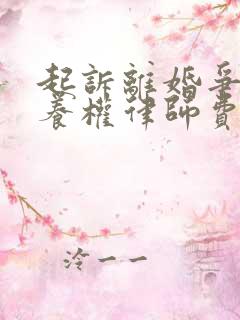 起訴離婚爭
養權律師費
泠一一